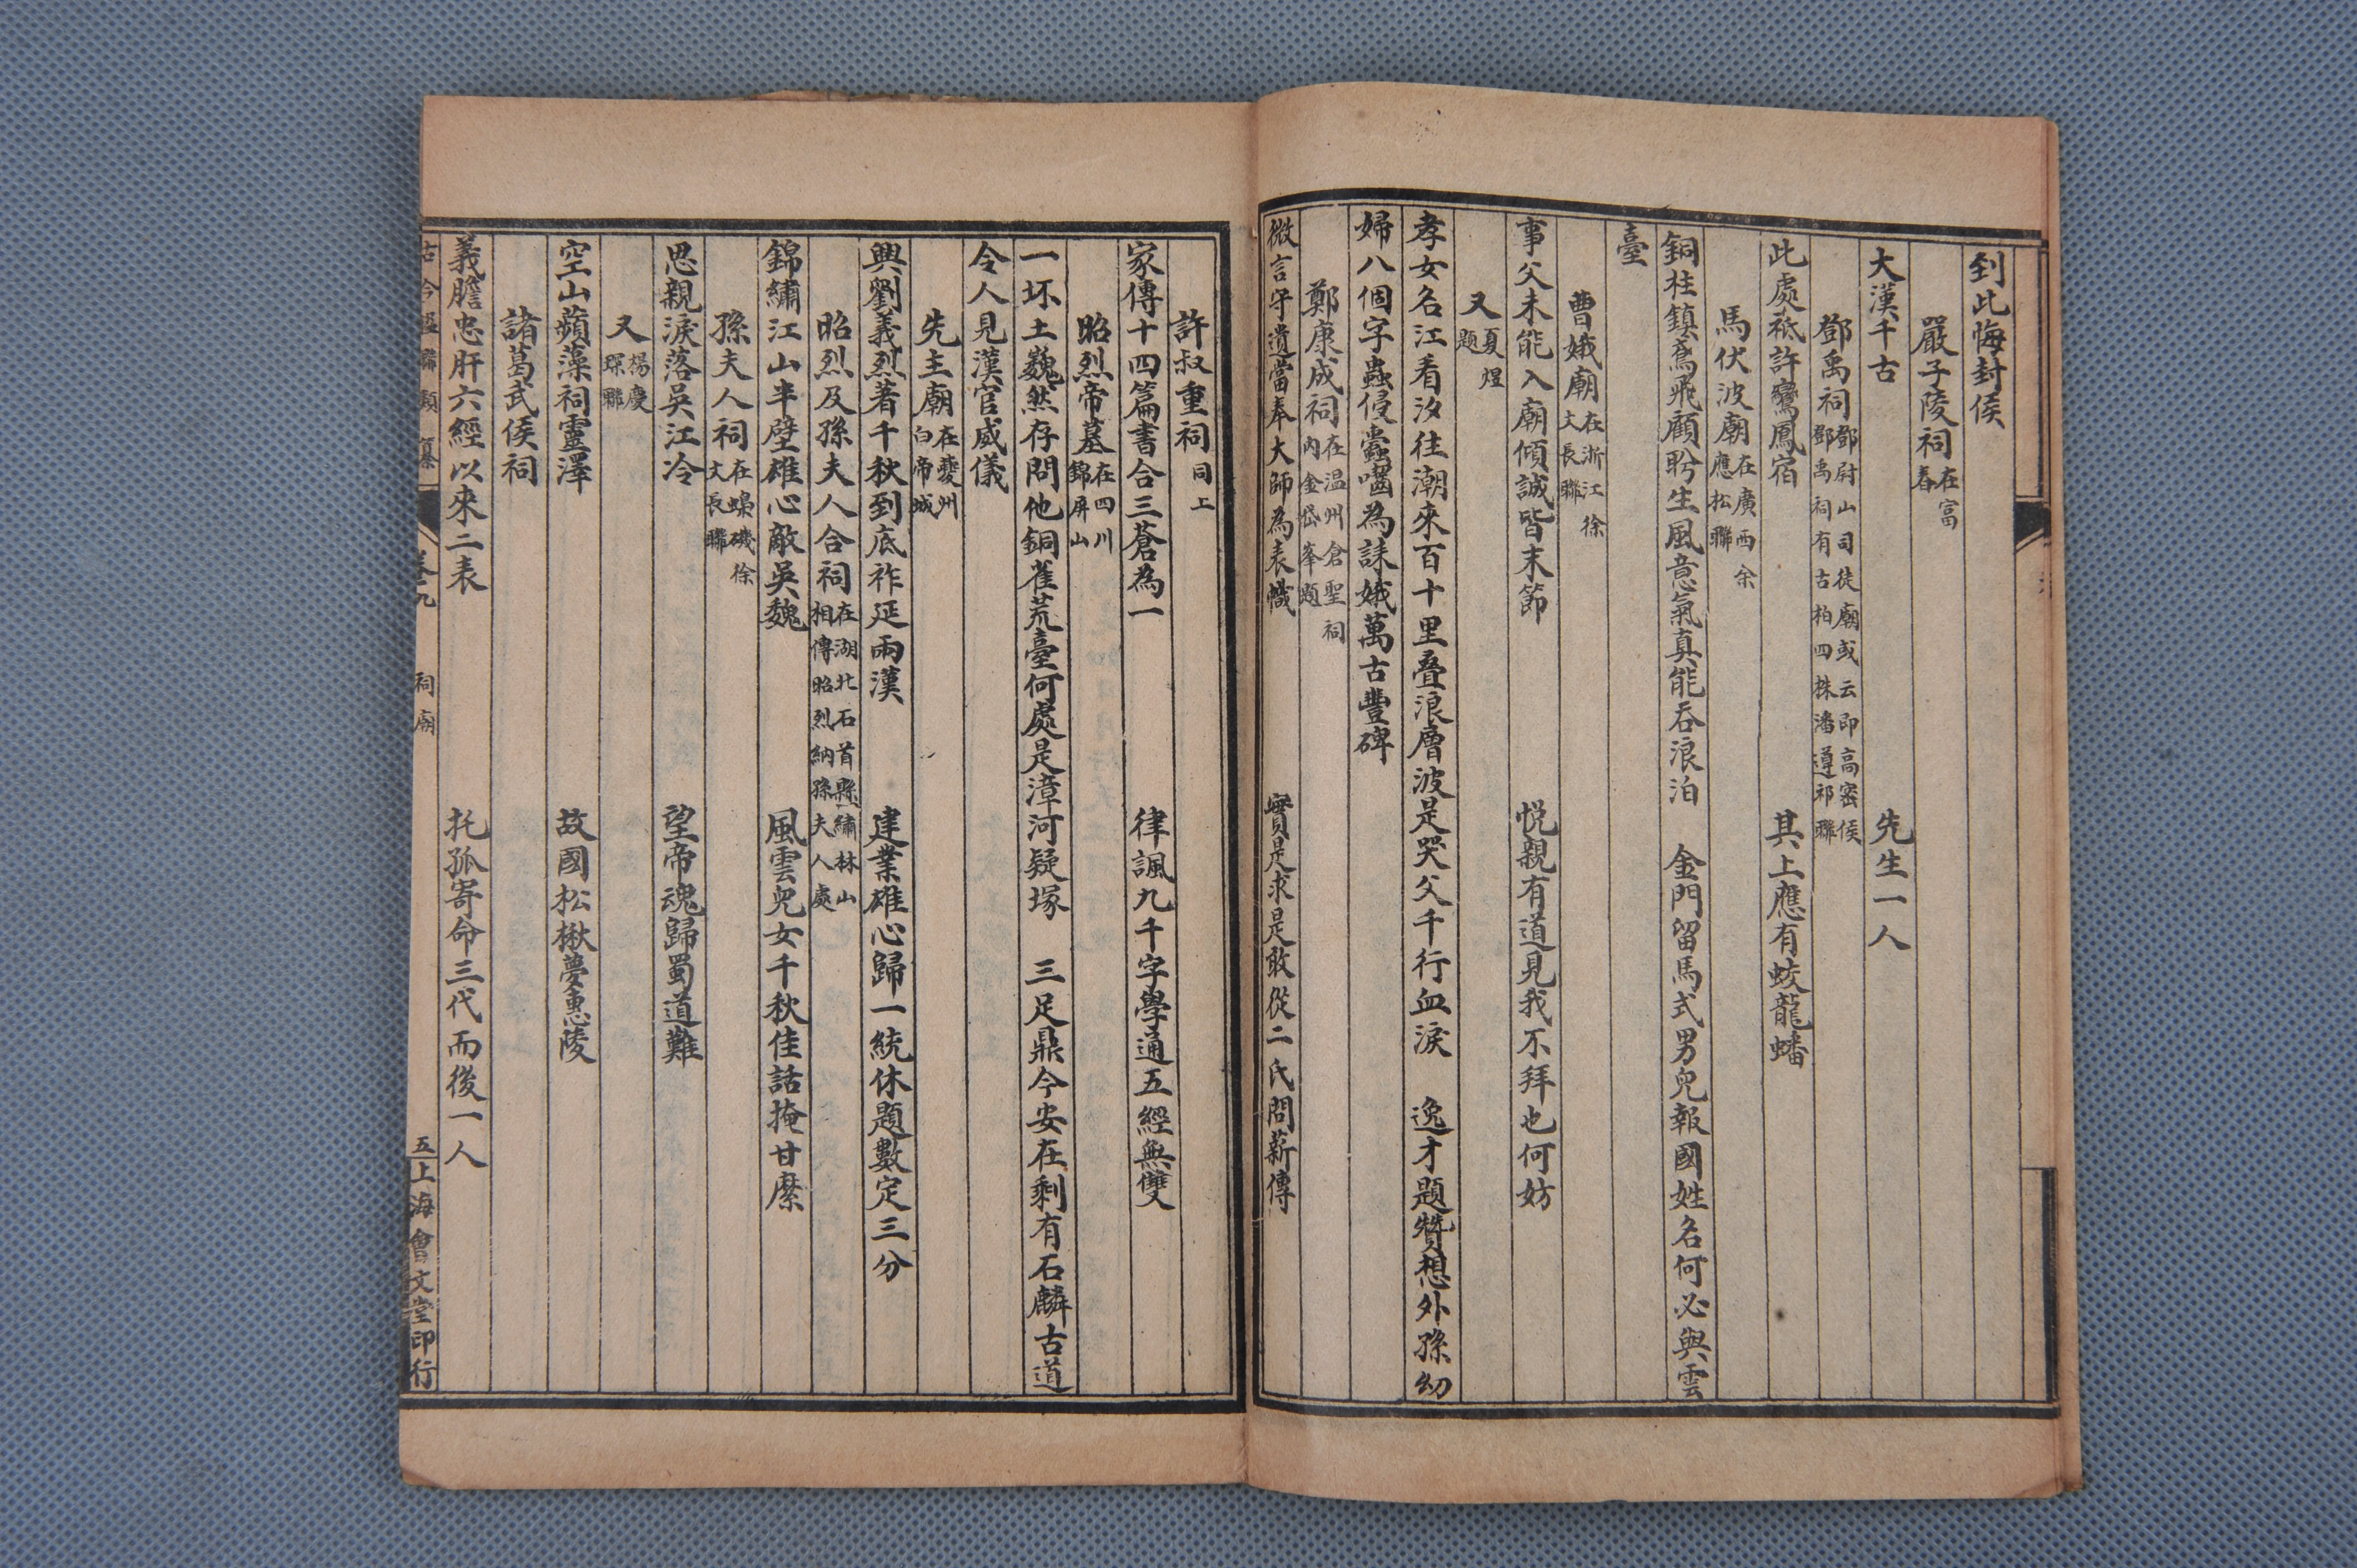 到此悔封侯
嚴子陵祠 在富春
大漢千古 先生一人
鄧禹祠 鄧尉山司徒廟或云即高密侯鄧禹祠有古柏四株潘遵祁聯
此處祗許鸞鳳宿 其上應有蛟龍蟠
馬伏波廟 在廣西余應松聯
銅柱鎮鳶飛顧盻生風意氣真能吞浪泊 金門留馬式男兒報國姓名何必與雲
臺
曹娥廟 在浙江徐大長聯
事父未能入廟傾誠皆末節 悦親有道見我不拜也何妨
又 夏煜題
孝女名江看汐往潮來百十里叠浪層波是哭父千行血淚 逸才題贊想外孫幼
婦八個字蟲侵蠹嚙為誄娥萬古豐碑
鄭康成祠 在温州倉聖祠内金岱峯題
微言守遺當奉大師為表幟 實是求是敢從二氏問薪傳
許叔重祠 同上
家傳十四篇書合三蒼為一 律諷九千字學通五經無雙
昭烈帝墓 在四川錦屏山
一坏土巍然存問他銅雀荒臺何處是漳河疑塚 三足鼎今安在剩有石麟古道
令人見漢官威儀
先主廟 在夔州白帝城
興劉義烈著千秋到底祚延兩漢 建業雄心歸一統休題數定三分
昭烈及孫夫人合祠 在湖北石首縣繡林山相傳昭烈納孫夫人處
錦繡江山半壁雄心敵吳魏 風雲兒女千秋佳話掩甘縻
孫夫人祠 在蟂磯徐文長聯
思親淚落吳江冷 望帝魂歸蜀道難
又 楊慶琛聯
空山蘋藻祠靈澤 故國松楸夢惠陵
諸葛武侯祠
義膽忠肝六經以來二表 托孤寄命三代而後一人
古今楹聯類纂 卷九 祠廟 五 上海會文堂印行